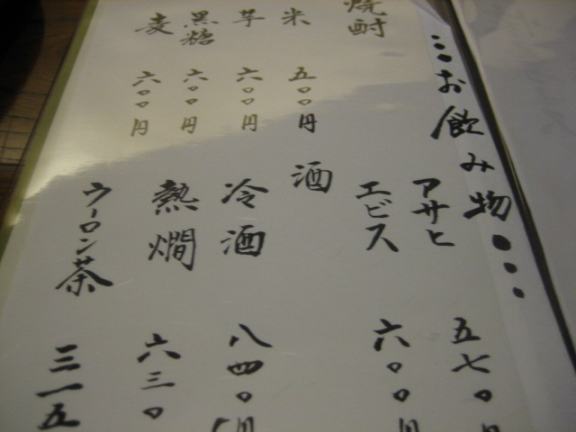 お飲み物
アサヒ 五七〇円
エビス 六〇〇円
酒
冷酒 八四〇円
熱燗 六三〇
ウーロン茶 三一五
焼酎
米 五〇〇円
芋 六〇〇円
黒糖 六〇〇円
麦 六〇〇円